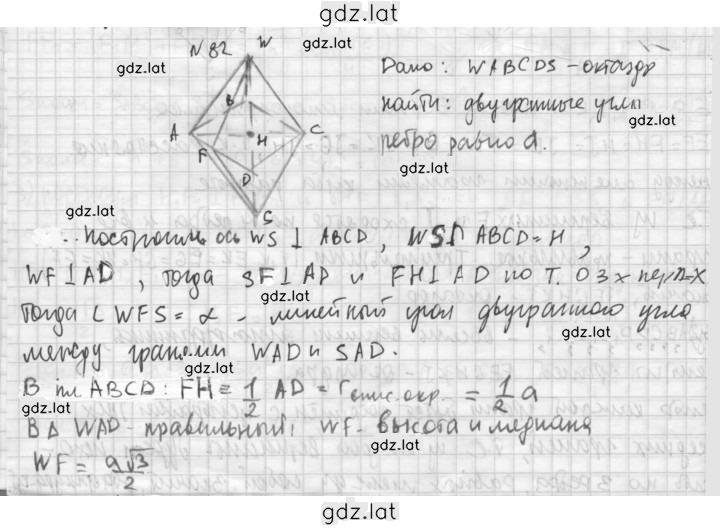 gdz.lat
N 82
W
gdz.lat
gdz.lat
Дано: WABCDS - октаэдр
B
найти: двугранные углы
gdz.lat
A
H
C
F
ребро равно a.
D
gdz.lat
S
gdz.lat
Построим ось WS ⊥ ABCD, WS ∩ ABCD = H,
WF ⊥ AD, тогда SF ⊥ AD и FH ⊥ AD по т. о 3х пер
gdz.lat
Тогда ∠ WFS = α - линейный угол двугранного угла
gdz.lat
между гранями WAD и SAD.
gdz.lat
В пл ABCD: FH = 1/2 AD = r впис. окр. = 1/2 a
В Δ WAD - правильный, WF - высота и медиана
gdz.lat
WF = a√3/2
gdz.lat